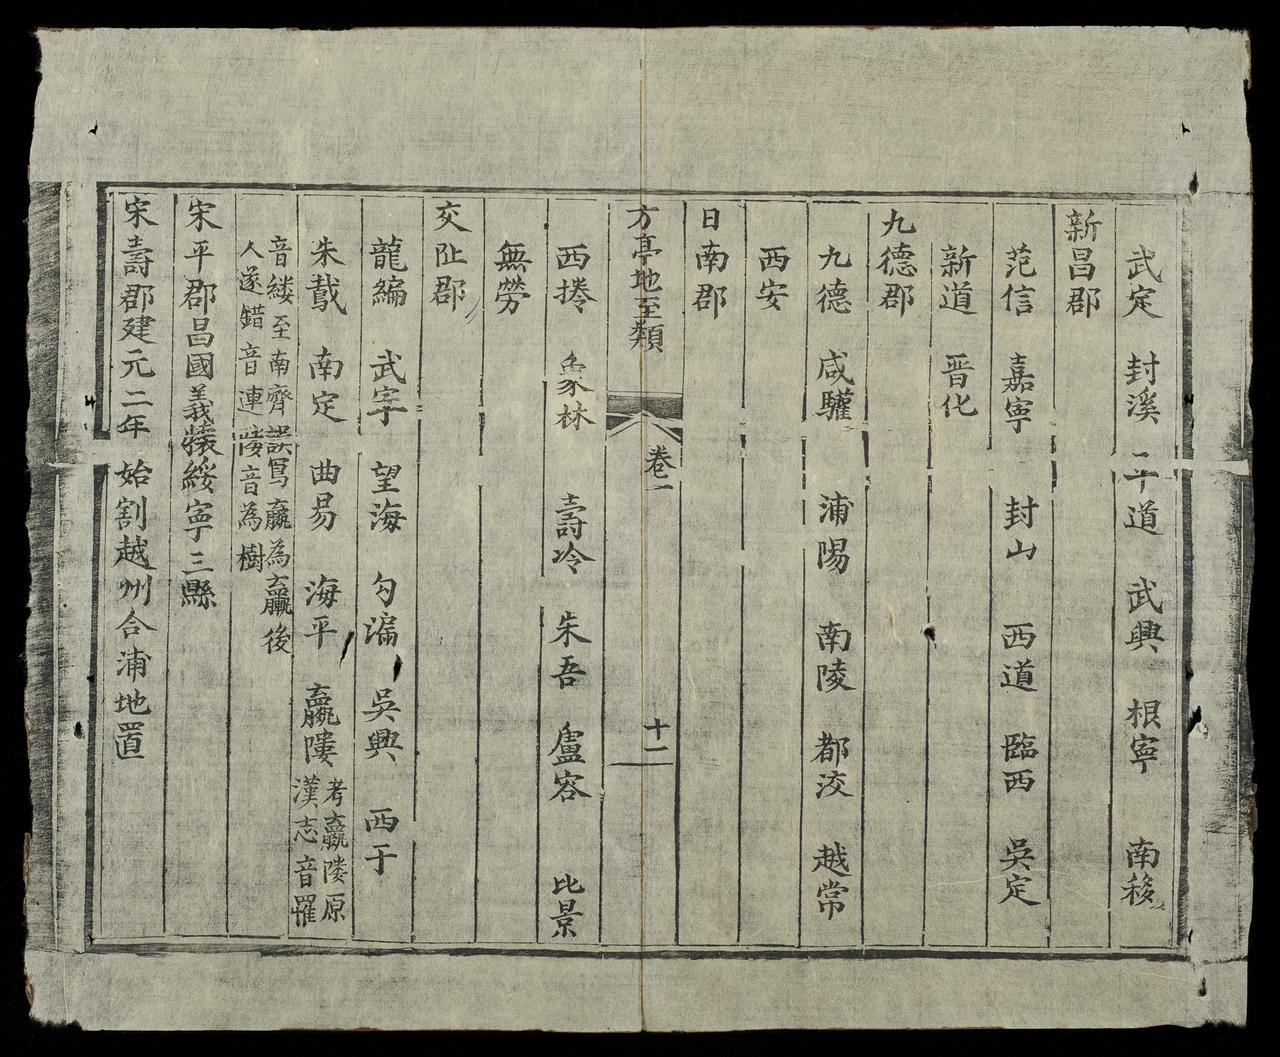 武定 封溪 平道 武興 根寧 南移
新昌郡
范信 嘉寧 封山 西道 臨西 吳定
新道 晋化
九德郡
九德 咸驩 浦陽 南陵 都洨 越常
西安
日南郡
方亭地至類 卷二 十一
西捲 象林 壽冷 朱吾 盧容 比景
無勞
交阯郡
龍編 武寧 望海 勾漏 吳興 西于
朱䳒 南定 曲昜 海平 羸𨻻 考羸陵原
漢志音羅
音縷至南齊誤寫羸為羸後
人遂錯音連𨻻音為樹
宋平郡昌國義懷綏寧三縣
宋壽郡建元二年始割越州合浦地置